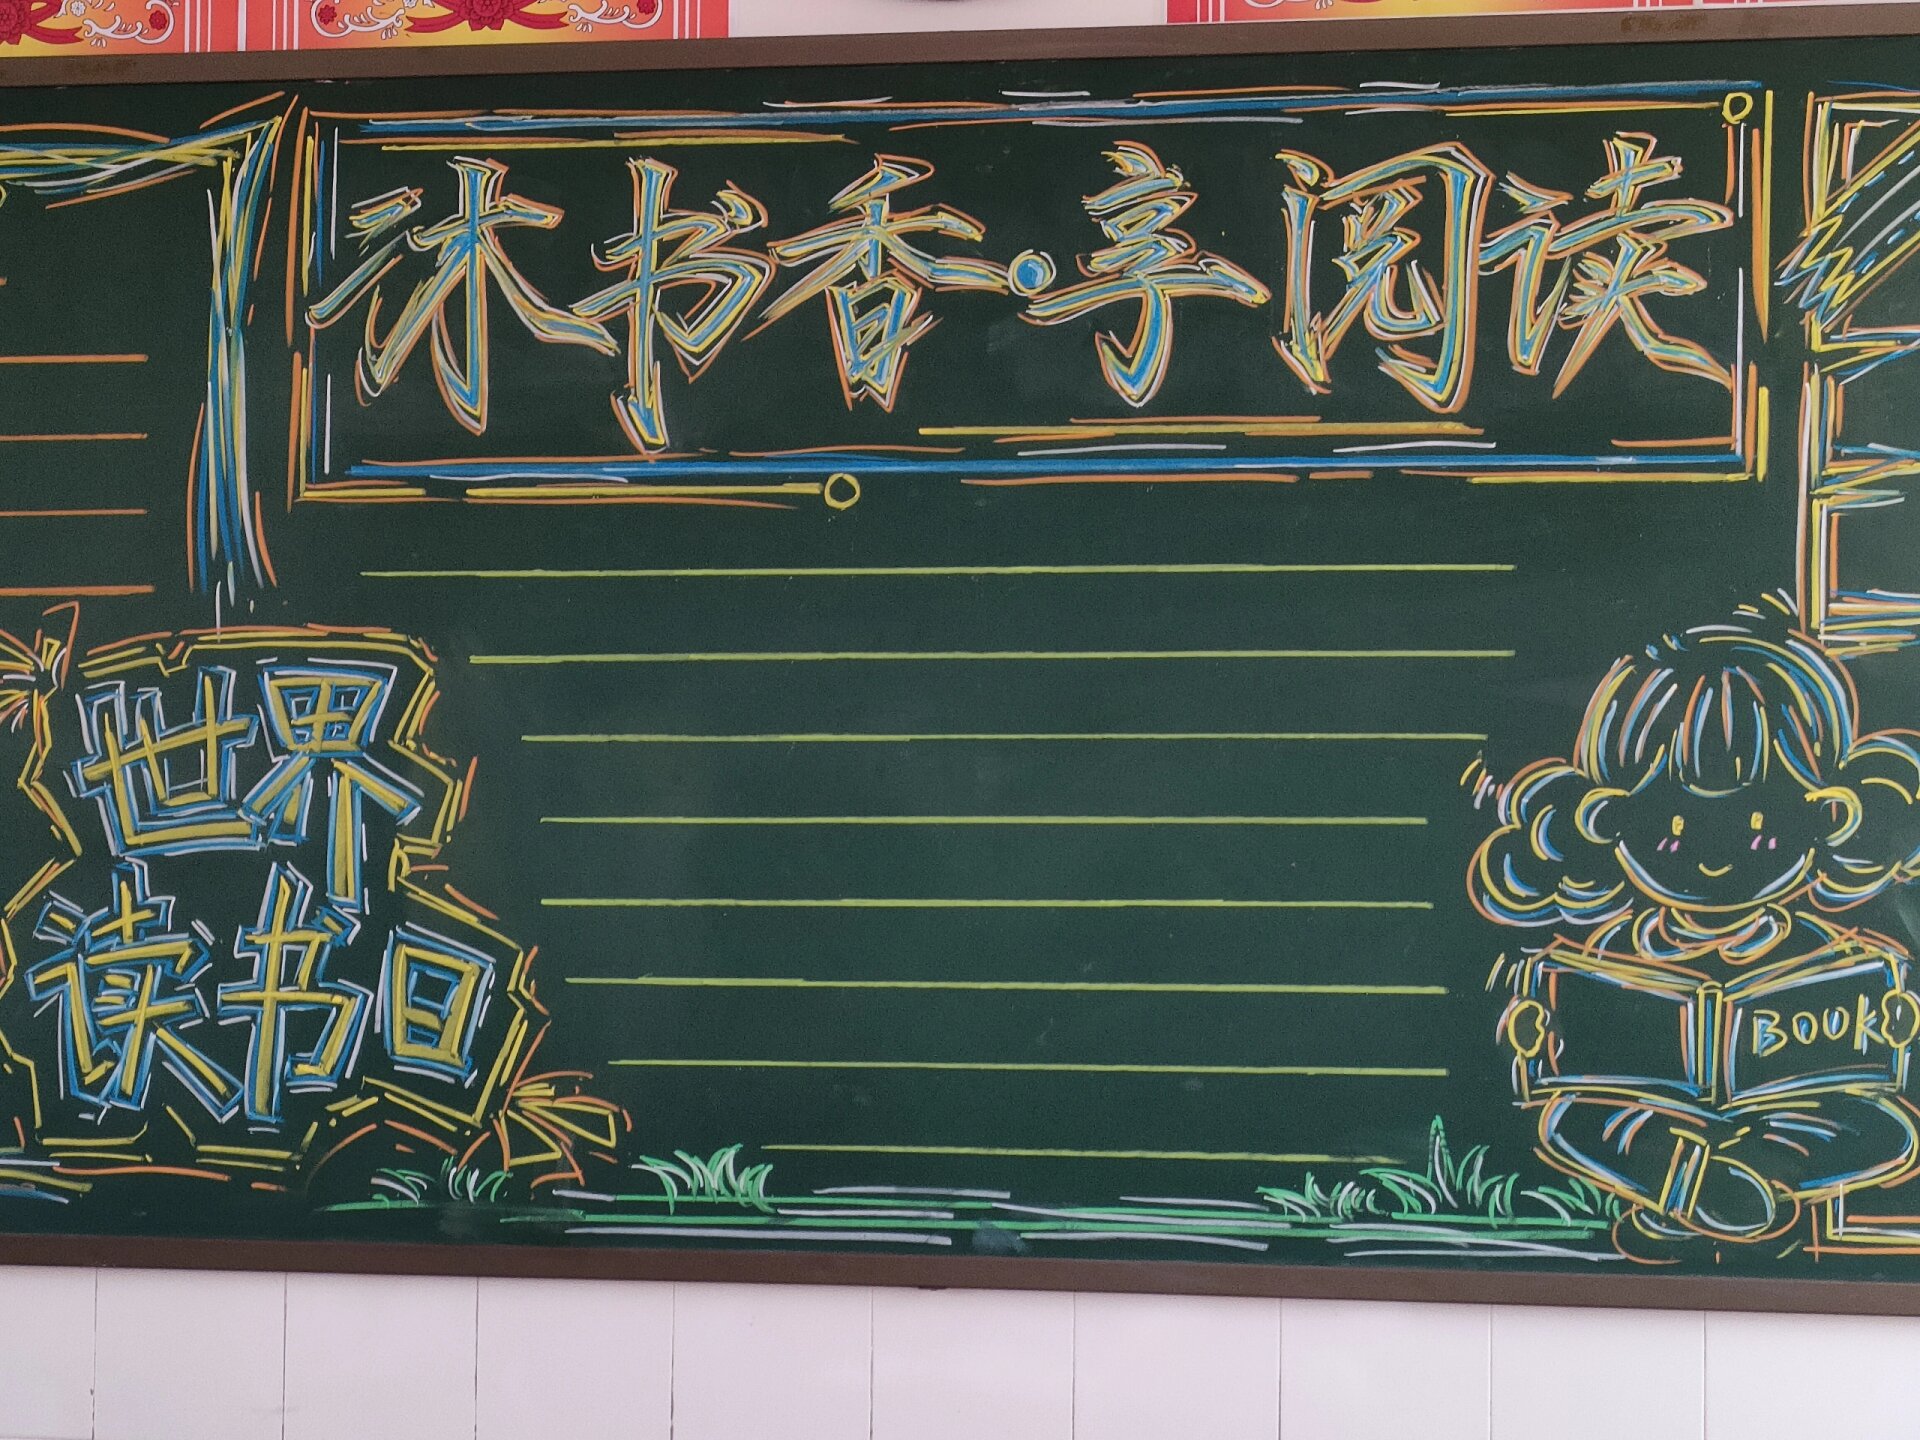 沐书香·享阅读
世界
读书日
BOOK